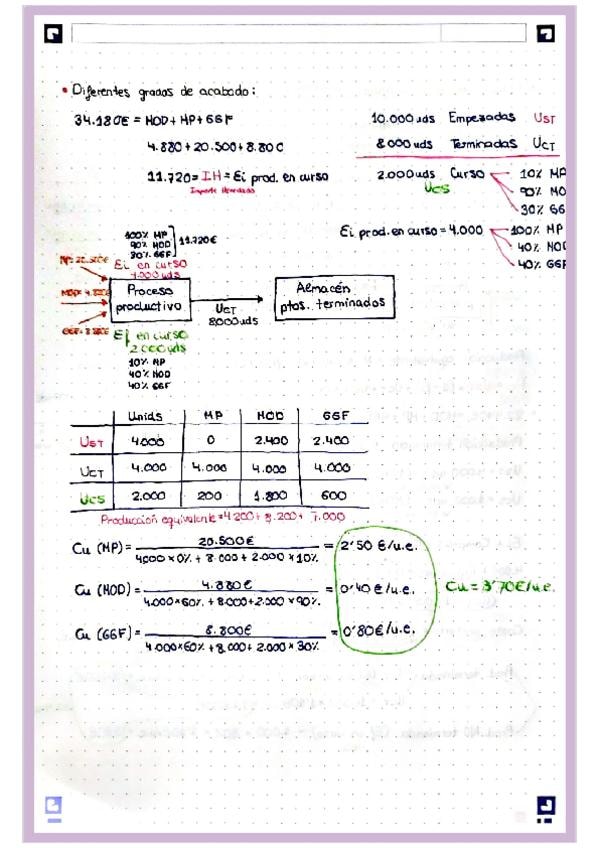 • Diferentes grados de acabado:
34.180€ = MOD + MP + GGF
4.880 + 20.500 + 8.800
11.720 = IH = Ei prod. en curso
Importe Heredado
10.000 uds Empezadas UST
8000 uds Terminadas UCT
2.000 uds Curso
UCS
10% MP
90% MO
30% GG
Ei prod. en curso = 4.000
100% MP
40% MOD
40% GGF
100% MP
90% MOD
80% GGF
11.720€
Ei en curso
4.000 uds
Proceso
productivo
UCT
8000 uds
Almacén
ptos. terminados
Ef en curso
2.000 uds
10% MP
40% MOD
40% GGF
Unids MP MOD GGF
UST 4.000 0 2.400 2.400
UCT 4.000 4.000 4.000 4.000
UCS 2.000 200 1.800 600
Producción equivalente = 4.200 + 8.200 + 7.000
Cu (MP) = 20.500€ = 2'50 €/u.e.
4000 x 0% + 8.000 + 2.000 x 10%
Cu (MOD) = 4.880€ = 0'40 €/u.e.
4.000 x 60% + 8.000 + 2.000 x 90%
Cu = 3'70€/u.e.
Cu (GGF) = 8.800€ = 0'80€/u.e.
4.000 x 60% + 8.000 + 2.000 x 30%